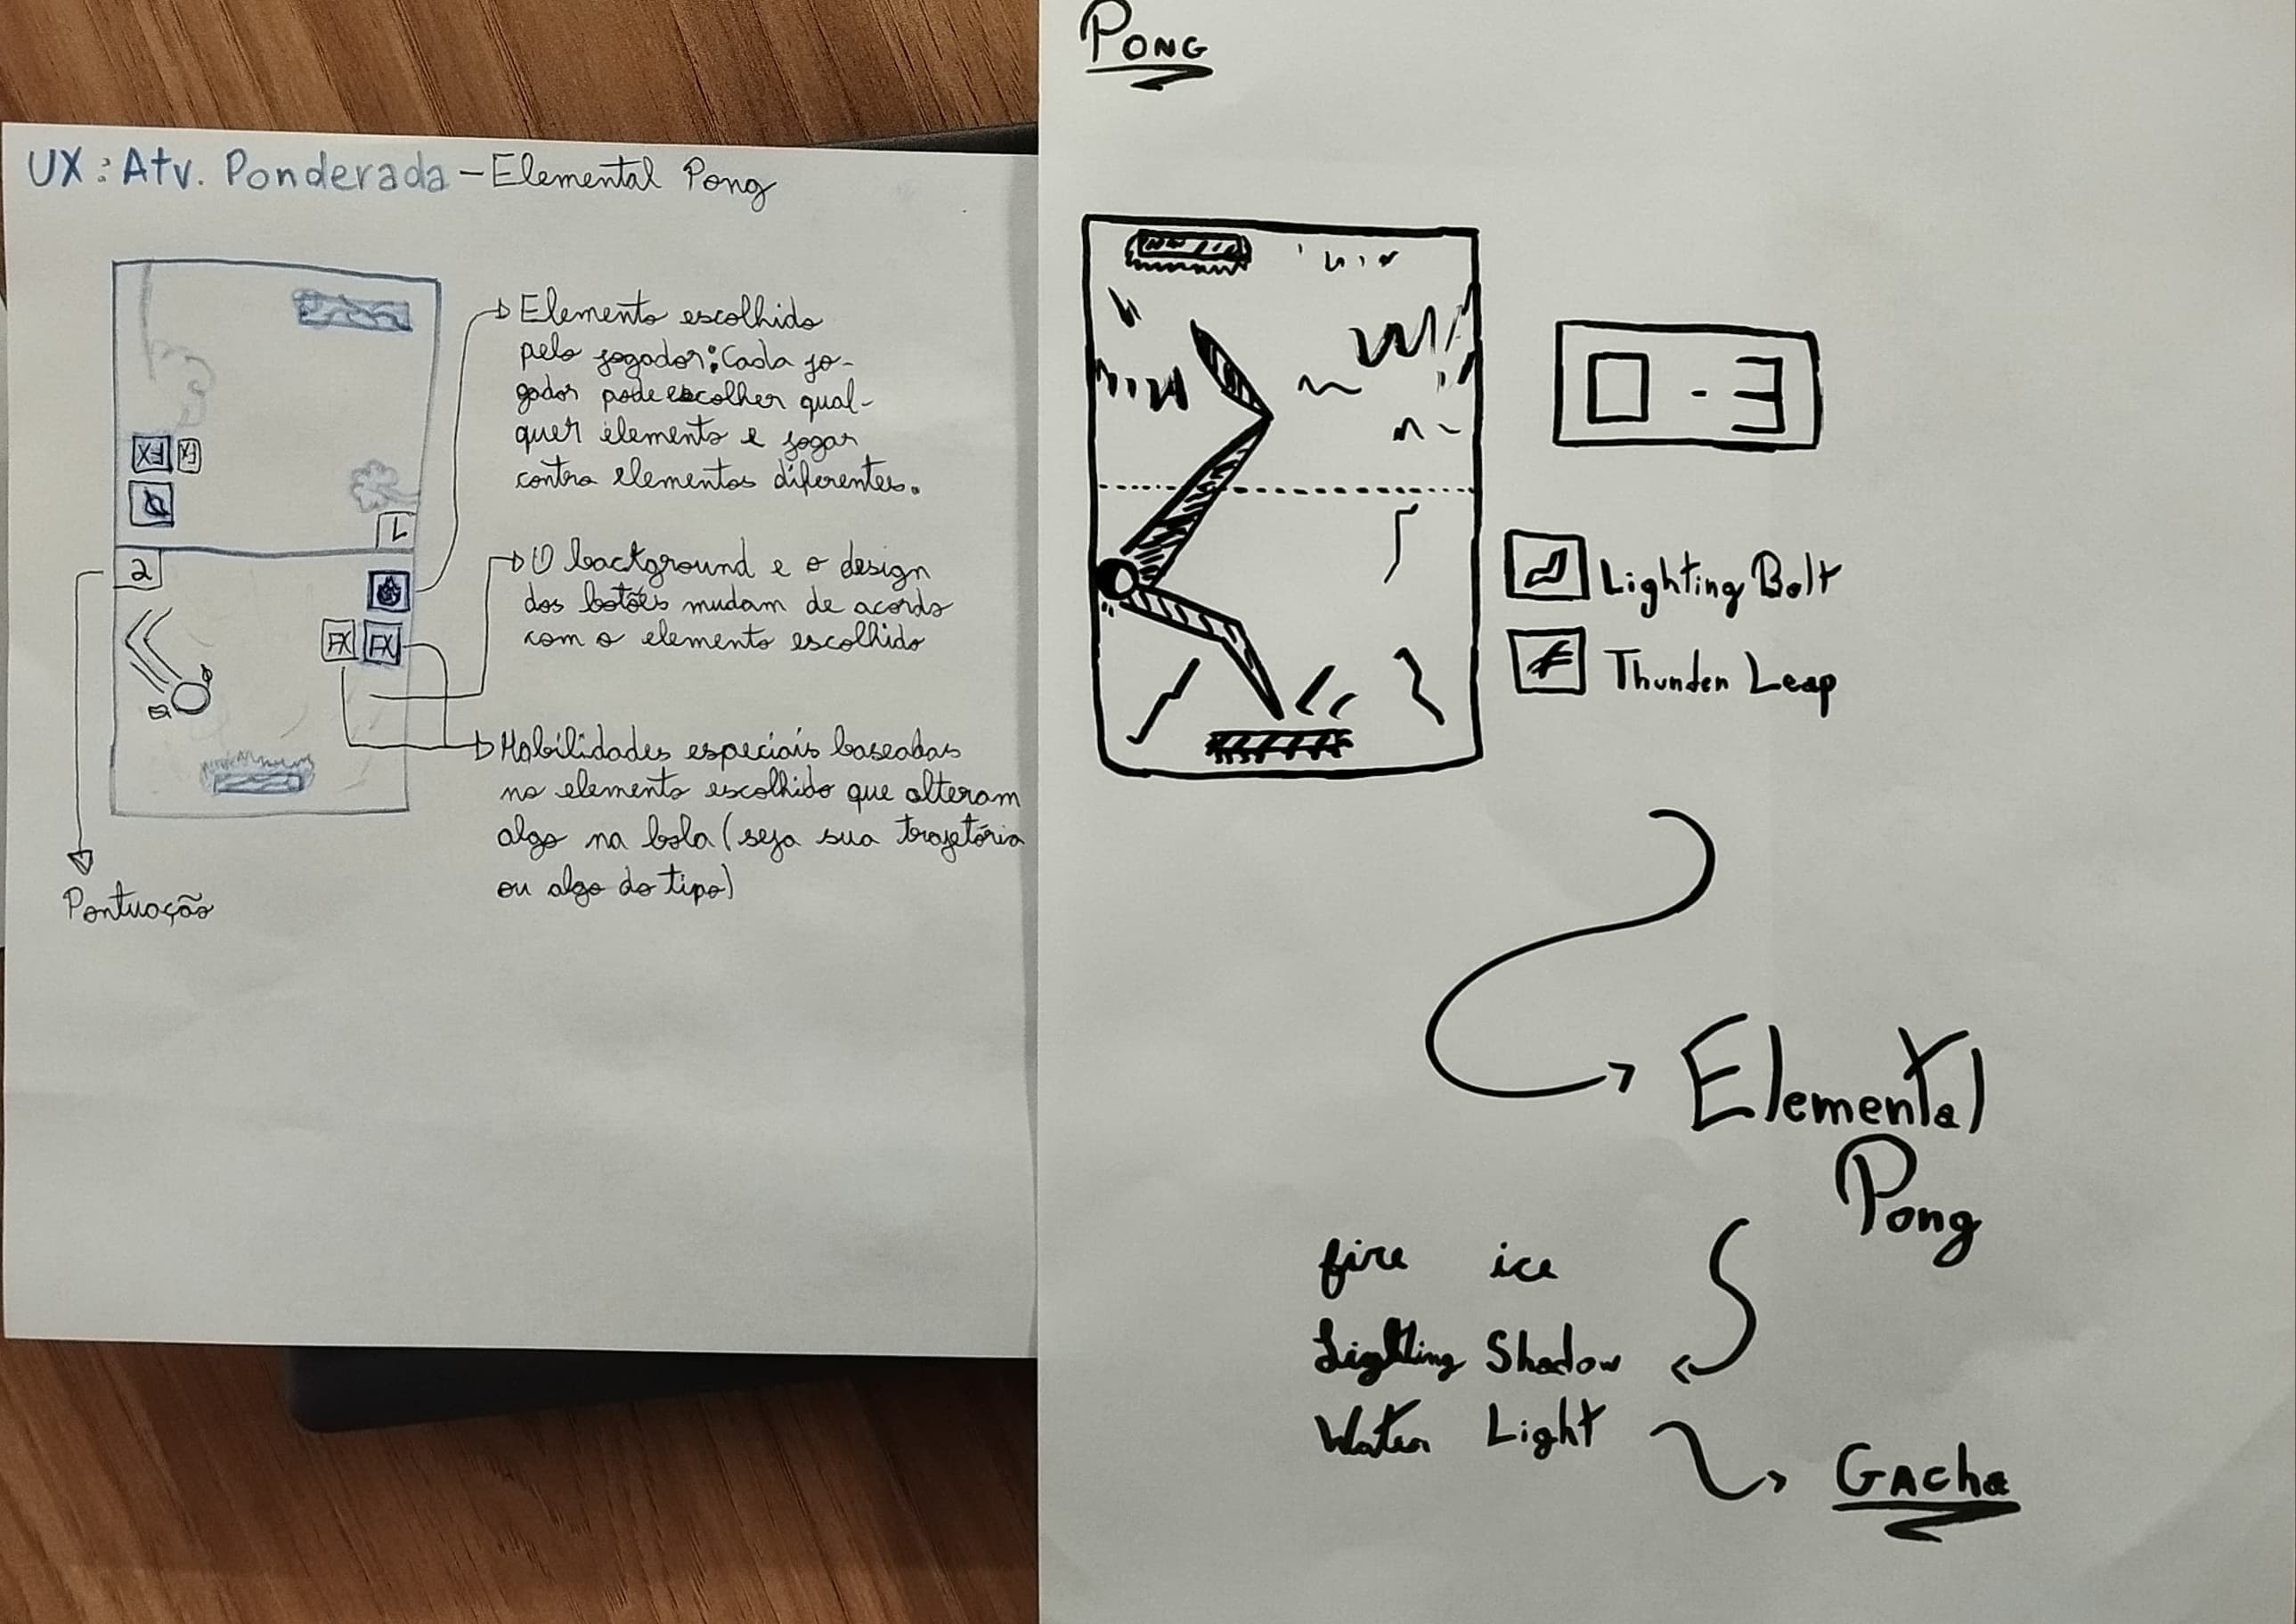 UX: Atv. Ponderada - Elemental Pong
Elemento escolhido
pelo jogador: Cada jo-
gador pode escolher qual-
quer elemento e jogar
contra elementos diferentes.
FX FX
1
2
O background e o design
dos botões mudam de acordo
com o elemento escolhido
FX FX
Habilidades especiais baseadas
no elemento escolhido que alteram
algo na bola (seja sua trajetória
ou algo do tipo)
Pontuação
PONG
0 - 3
Lighting Bolt
Thunder Leap
Elemental
Pong
fire ice
Lighting Shadow
Water Light
GACha